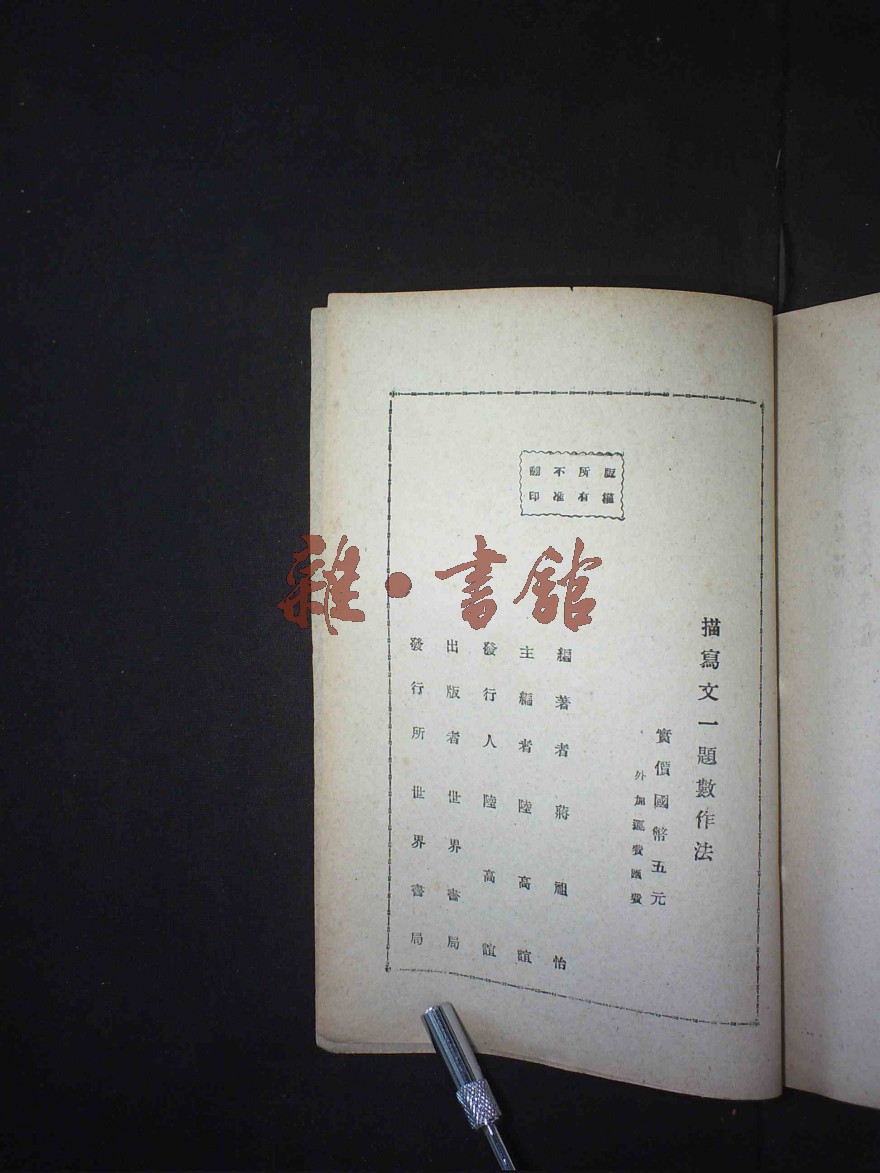 版權
所有
不准
翻印
描寫文一題數作法
實價國幣五元
外加運費匯費
編著者 蔣祖怡
主編者 陸高誼
發行人 陸高誼
出版者 世界書局
發行所 世界書局
雜·書館